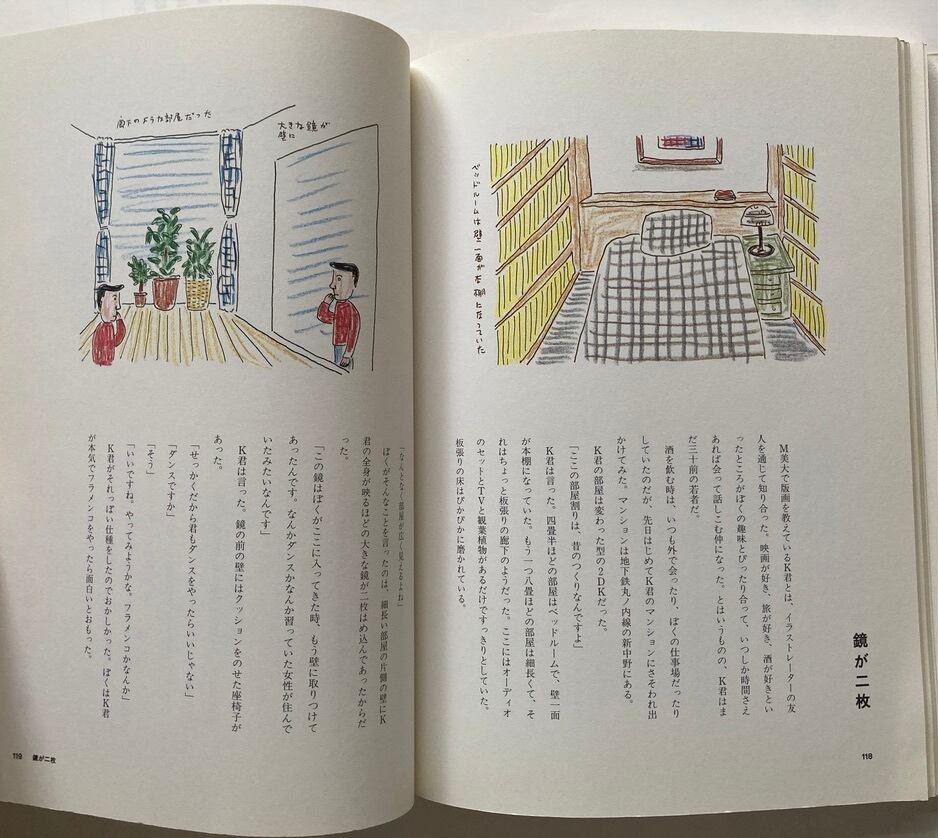 鏡が二枚
M美大で版画を教えているK君とは、イラストレーターの友
人を通じて知り合った。映画が好き、旅が好き、酒が好きとい
ったところがぼくの趣味とぴったり合って、いつしか時間さえ
あれば会って話しこむ仲になった。とはいうものの、K君はま
だ三十前の若者だ。
酒を飲む時は、いつも外で会ったり、ぼくの仕事場だったり
していたのだが、先日はじめてK君のマンションにさそわれ出
かけてみた。マンションは地下鉄丸ノ内線の新中野にある。
K君の部屋は変わった型の2DKだった。
「ここの部屋割りは、昔のつくりなんですよ」
K君は言った。四畳半ほどの部屋はベッドルームで、壁一面
が本棚になっていた。もう一つ八畳ほどの部屋は細長くて、そ
れはちょっと板張りの廊下のようだった。ここにはオーディオ
のセットとTVと観葉植物があるだけですっきりとしていた。
板張りの床はぴかぴかに磨かれている。
ベッドルームは壁一面が本棚になっていた
118
廊下のような部屋だった
大きな鏡が
壁に
「なんとなく部屋が広く見えるよね」
ぼくがそんなことを言ったのは、細長い部屋の片側の壁にK
君の全身が映るほどの大きな鏡が二枚はめ込んであったからだ
った。
「この鏡はぼくがここに入ってきた時、もう壁に取りつけて
あったんです。なんかダンスかなんか習っていた女性が住んで
いたみたいなんです」
K君は言った。鏡の前の壁にはクッションをのせた座椅子が
あった。
「せっかくだから君もダンスをやったらいいじゃない」
「ダンスですか」
「そう」
「いいですね。やってみようかな。フラメンコかなんか」
K君がそれっぽい仕種をしたのでおかしかった。ぼくはK君
が本気でフラメンコをやったら面白いとおもった。
119 鏡が二枚